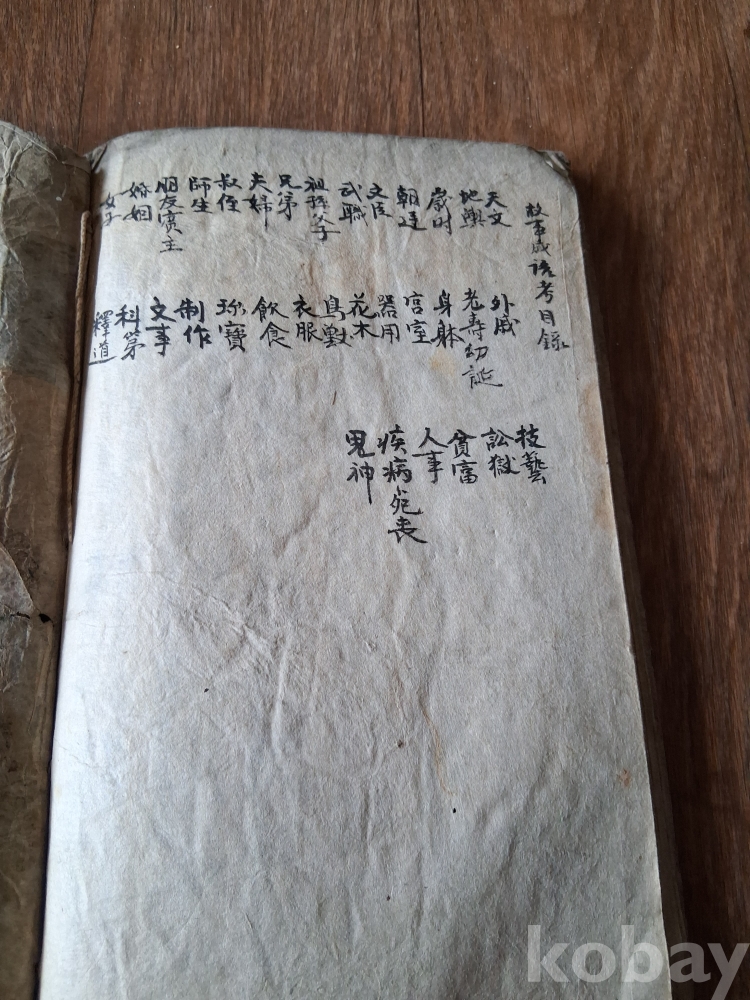 故事成語考目錄
天文
地輿
歲時
朝廷
文臣
武職
祖孫父子
兄弟
夫婦
叔侄
師生
朋友賓主
婚姻
女子
外戚
老壽幼誕
身躰
宮室
器用
花木
鳥獸
衣服
飲食
珍寶
制作
文事
科第
釋道
技藝
訟獄
貧富
人事
疾病死喪
鬼神
kobay